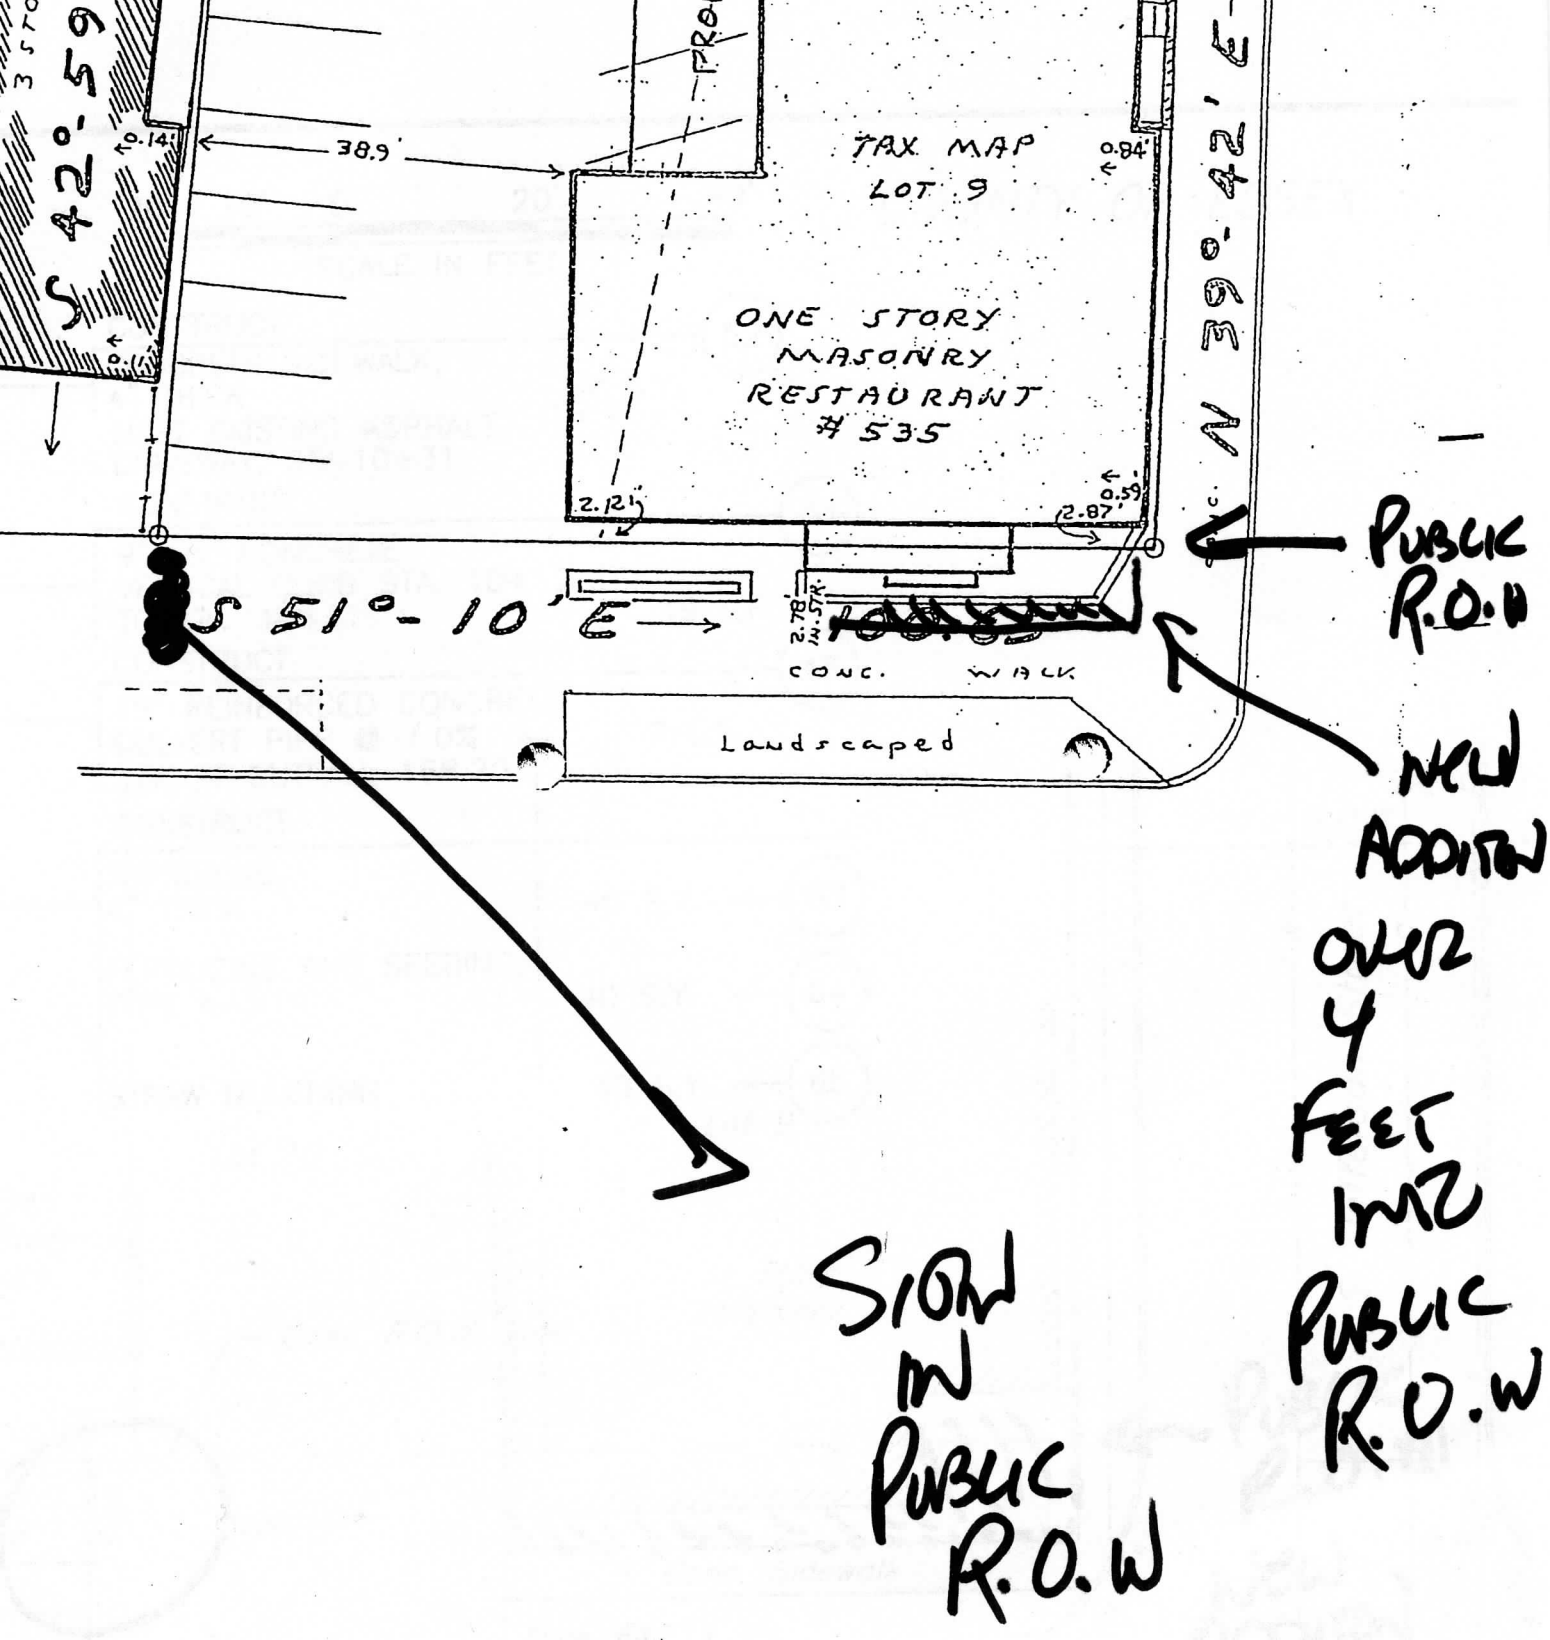 3 STO
S 42°-59
0.14'
38.9'
PRO
TAX MAP
LOT 9
0.84'
N 39°-42' E
ONE STORY
MASONRY
RESTAURANT
# 535
2.12'
0.59'
2.87'
S 51°-10' E
2.78'
IN. STR.
CONC. WALK
Landscaped
PUBLIC
R.O.W
NEW
ADDITION
OVER
4
FEET
INTO
PUBLIC
R.O.W
SIGN
IN
PUBLIC
R.O.W
20'
SCALE IN FEET